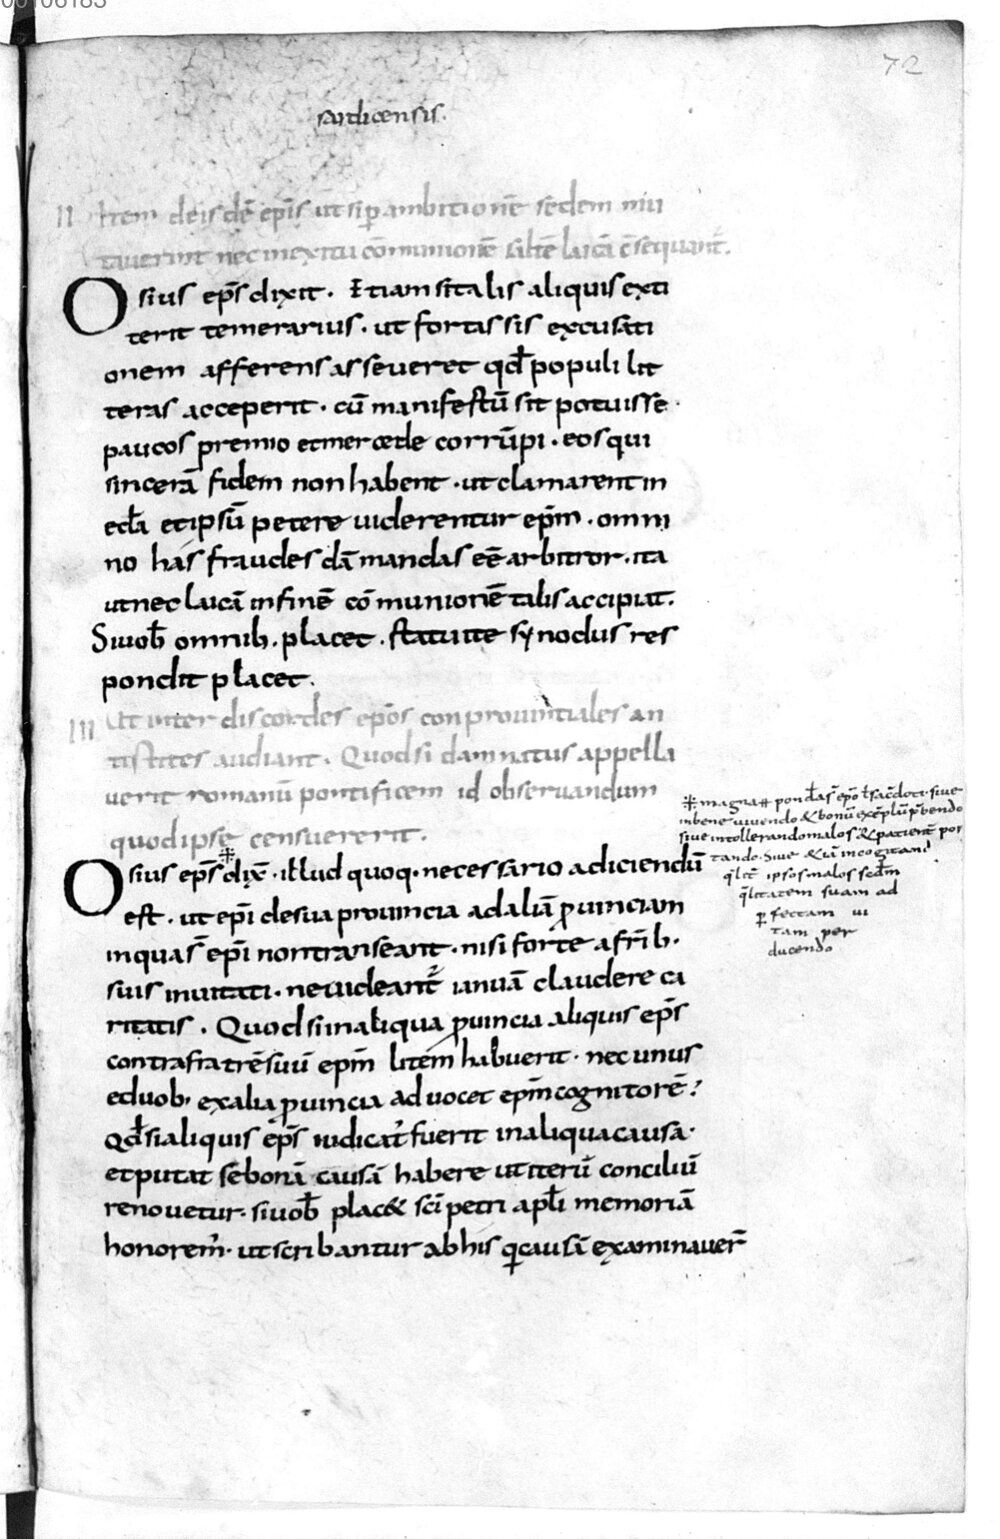 72
sardicensis.
II Item deisdē ep̄is ut si ꝑ ambitionē sedem mu
taverint nec in exitu cōmunionē saltē laicā c̄sequant̄.
Osius ep̄s dixit. Etiam si talis aliquis exti
terit temerarius. ut fortassis excusati
onem afferens asseveret qd̄ populi lit
teras acceperit. cū manifestū sit potuisse.
paucos premio et mercede corrūpi. eos qui
sincerā fidem non habent. ut clamarent in
eccla et ipsū petere viderentur ep̄m. omni
no has fraudes dāmandas eē arbitror. ita
ut nec laicā in finē cōmunionē talis accipiat.
Si vob̄ omnib. placet. statuite synodus res
pondit placet.
III Ut inter discordes ep̄os conprovintiales an
tistites audiant. Quod si damnatus appella
verit romanū pontificem id observandum
quod ipse censuererit.
Osius ep̄s dix̄. illud quoq. necessario adiciendū
est. ut ep̄i de sua provincia ad aliā ꝓvinciam
in qua s̄ ep̄i non transeant. nisi forte a fr̄ib.
suis invitati. ne videant̄ ianuā claudere ca
ritatis. Quod si in aliqua ꝓvincia aliquis ep̄s
contra fratrē suū ep̄m litem habuerit. nec unus
e duob. ex alia ꝓvincia advocet ep̄m cognitorē.
Qd̄ si aliquis ep̄s iudicat̄ fuerit in aliqua causa.
et putat se bonā causā habere ut iterū conciliū
renovetur. si vob̄ plac& sc̄i petri apl̄i memoriā
honorem̄. ut scribantur ab his q̄ causā examinaver̄
magna pondas ep̄o ł sacdoti. sive
in bene vivendo & bonū exēplū p̄bendo
sive intollerando malos & patient̄ por
tando. Sive
ipsos malos scdm
q̄litatem suam ad
ꝑfectam vi
tam per
ducendo